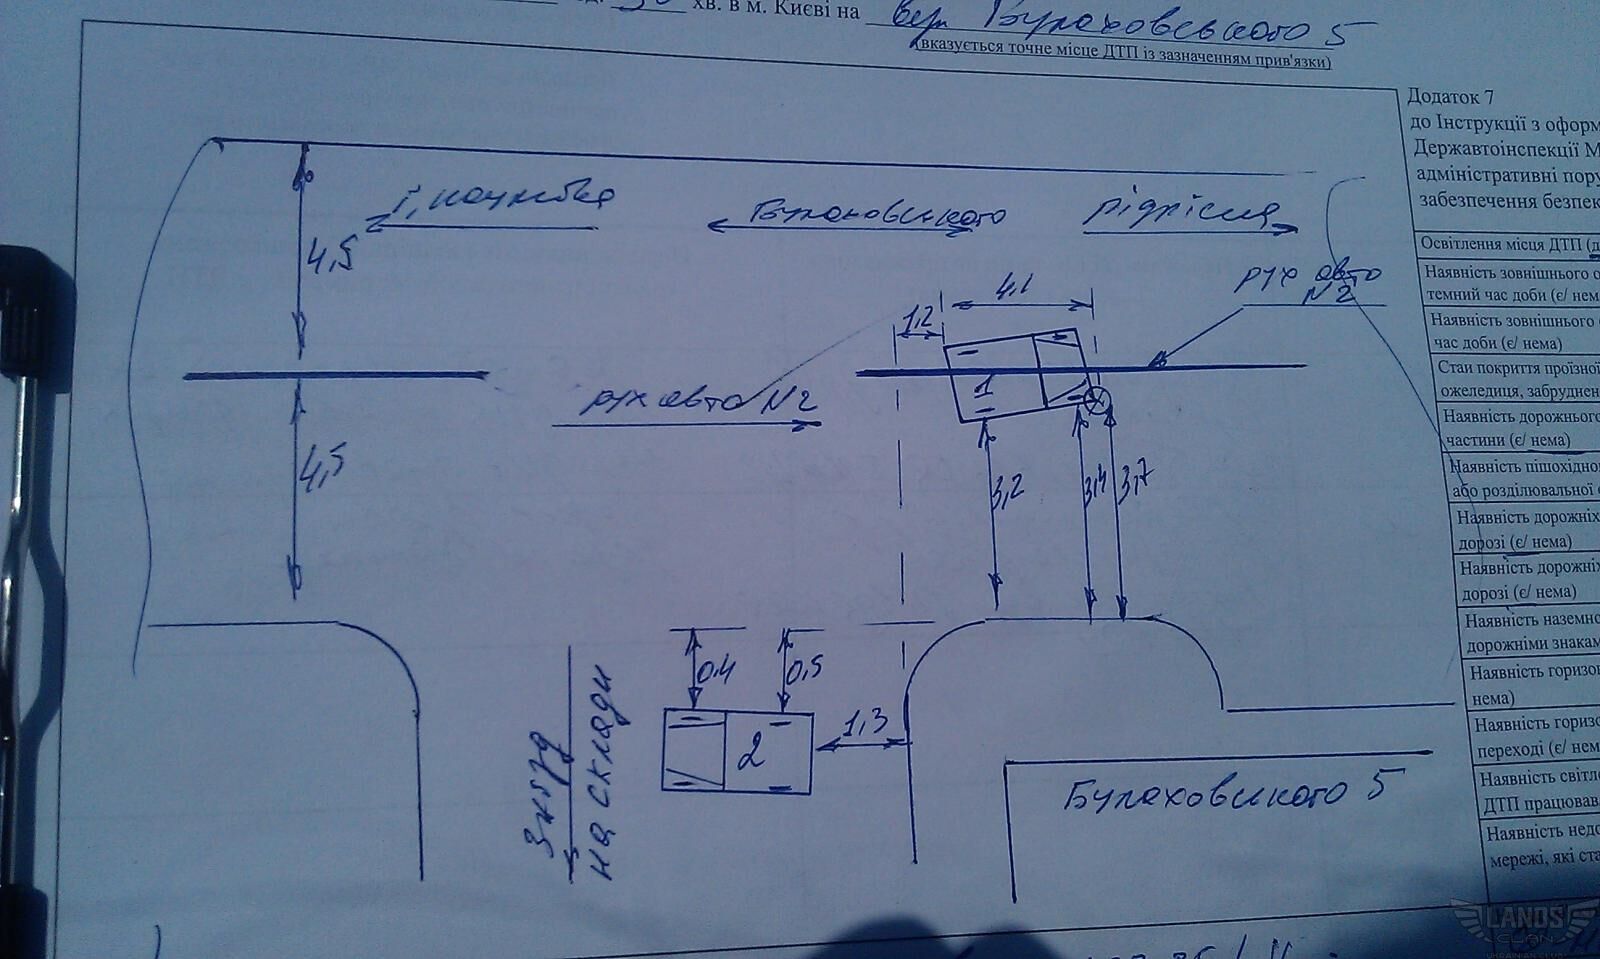 хв. в м. Києві на вул Булаховського 5
(вказується точне місце ДТП із зазначенням прив'язки)
Додаток 7
до Інструкції з оформ
Державтоінспекції М
адміністративні пору
забезпечення безпек
Освітлення місця ДТП (д
Наявність зовнішнього о
темний час доби (є/ нем
Наявність зовнішнього
час доби (є/ нема)
Стан покриття проїзної
ожеледиця, забруднен
Наявність дорожнього
частини (є/ нема)
Наявність пішохідно
або розділювальної
Наявність дорожніх
дорозі (є/ нема)
Наявність дорожніх
дорозі (є/ нема)
Наявність наземно
дорожніми знакам
Наявність горизон
нема)
Наявність горизо
переході (є/ нем
Наявність світло
ДТП працював
Наявність недо
мережі, які ста
Г, Наумова
Булаховського
рух авто
N2
4,5
4,1
1,2
1
рух авто N2
4,5
3,2
3,4
3,7
0,4
0,5
1,3
2
на склади
Булаховського 5
LANOS
CLAN
UKRAINIAN CLUB